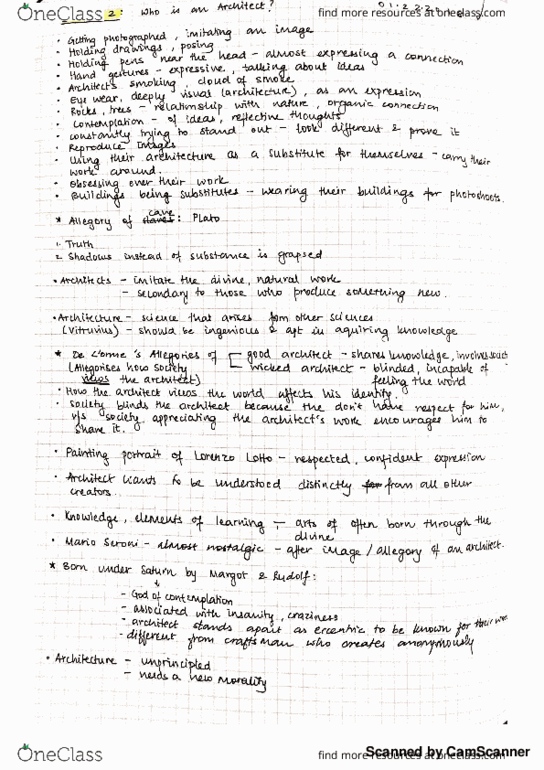 OneClass
find more resources at oneclass.com
2: Who is an Architect?
• Getting photographed, imitating an image
• Holding drawings, posing
• Holding pens near the head - almost expressing a connection
• Hand gestures - expressive, talking about ideas
• Architects smoking, cloud of smoke
• Eye wear, deeply visual (architecture), as an expression
• Rocks, trees - relationship with nature, organic connection
• Contemplation - of ideas, reflective thoughts
• constantly trying to stand out - look different & prove it
• Reproduce Images
• Using their architecture as a substitute for themselves - carry their
work around.
• Obsessing over their work
• Buildings being substitutes - wearing their buildings for photoshoots.
* Allegory of cave: Plato
1. Truth
2. Shadows instead of substance is grapsed
• Architects - imitate the divine, natural work
- secondary to those who produce something new.
• Architecture - science that arises from other sciences
(Vitruvius) - should be ingenious & apt in aquiring knowledge
* De L'orme's Allegories of good architect - shares knowledge, involves
(Allegorises how society wicked architect - blinded, incapable of
views the architect) feeling the world
• How the architect views the world affects his identity.
• Society blinds the architect because the don't have respect for him,
v/s society appreciating the architect's work encourages him to
share it.
• Painting portrait of Lorenzo Lotto - respected, confident expression
• Architect wants to be understood distinctly from all other
creators.
• Knowledge, elements of learning - arts of often born through the
divine
• Mario Seroni - almost nostalgic - after image / allegory of an architect.
* Born under Saturn by Margot & Rudolf:
- God of contemplation
- associated with insanity, craziness
- architect stands apart as eccentric to be known for their
- different from craftsman who creates anonymously
• Architecture - unprincipled
- needs a new morality
OneClass
find more resources at oneclass.com
Scanned by CamScanner